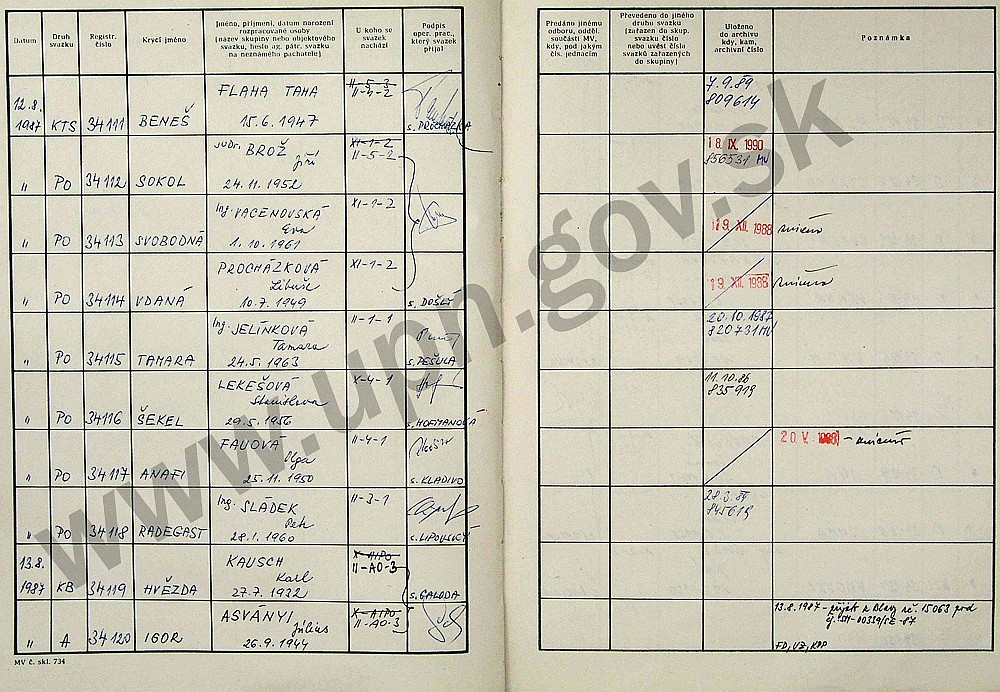 Datum
Druh
svazku
Registr.
číslo
Krycí jméno
Jméno, příjmení, datum narození
rozpracované osoby
(název skupiny nebo objektového
svazku, heslo ag. pátr. svazku
na neznámého pachatele)
U koho se
svazek
nachází
Podpis
oper. prac.,
který svazek
přijal
Předáno jinému
odboru, odděl.
součásti MV,
kdy, pod jakým
čís. jednacím
Převedeno do jiného
druhu svazku
(zařazen do skup.
svazku číslo
nebo uvést čísla
svazků zařazených
do skupiny)
Uloženo
do archivu
kdy, kam,
archivní číslo
Poznámka
12.8.
1987 KTS 34111 BENEŠ
FLAHA TAHA
15.6.1947
II-5-3
II-4-2
s. PROCHÁZKA
7.9.89
809614
" PO 34112 SOKOL
JUDr. BROŽ
Jiří
24.11.1952
XI-1-2
II-5-2
18. IX. 1990
856531 MV
" PO 34113 SVOBODNÁ
Ing. VACENOVSKÁ
Eva
1.10.1961
XI-1-2
19. XII. 1988 zničeno
" PO 34114 VDANÁ
PROCHÁZKOVÁ
Libuše
10.7.1949
XI-1-2
s. DOŠLÝ
19. XII. 1988 zničeno
" PO 34115 TAMARA
Ing. JELÍNKOVÁ
Tamara
24.5.1963
II-1-1
s. PEŠULA
20.10.1987
820731 MV
" PO 34116 ŠEKEL
LEKEŠOVÁ
Stanislava
29.5.1956
X-4-1
s. HOFMANOVÁ
11.10.86
835919
" PO 34117 ANAFI
Olga
25.11.1950
II-4-1
s. KLADIVO
20. V. 1988 - zničeno
" PO 34118 RADEGAST
Ing. SLÁDEK
Petr
28.1.1960
II-3-1
s. LIPOVSKÝ
28.3.89
845619
13.8.
1987 KB 34119 HVĚZDA
KAUSCH
Karl
27.7.1932
X-AIPO
II-AO-3
s. GALODA
" A 34120 IGOR
ASVÁNYI
Július
26.9.1944
X-AIPO
II-AO-3
13.8.1987 - přijat z Blavy reč. 15063 pod
čj. SN-00339/SE-87
MV č. skl. 734
www.upn.gov.sk